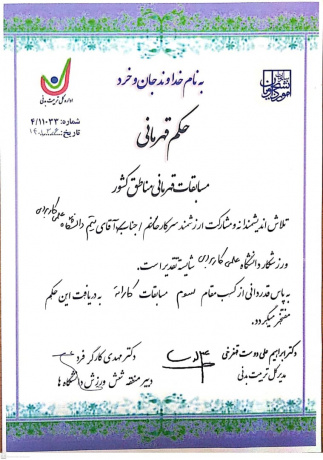 به نام خداوند جان و خرد
امور دانشجویان
اداره کل تربیت بدنی
شماره: ۴/۱۱۰۳۳
تاریخ:
حکم قهرمانی
مسابقات قهرمانی مناطق کشور
تلاش اندیشمندانه و مشارکت ارزشمند سرکار خانم / جناب آقای تیم دانشگاه علمی کاربردی
ورزشکار دانشگاه علمی کاربردی شایسته تقدیر است.
به پاس قدردانی از کسب مقام سوم مسابقات کاراته به دریافت این حکم
مفتخر میگردد.
دکتر ابراهیم علی دوست قهفرخی
مدیر کل تربیت بدنی
دکتر مهدی کارگر فرد
دبیر منطقه شش ورزش دانشگاه ها